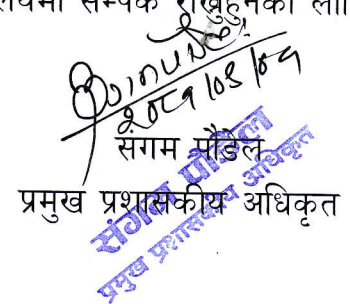 सम्पर्क राख्नुहुनको
२०८१/०३/०५
संगम पौडेल
प्रमुख प्रशासकीय अधिकृत
संगम पौडेल
प्रमुख प्रशासकीय अधिकृत